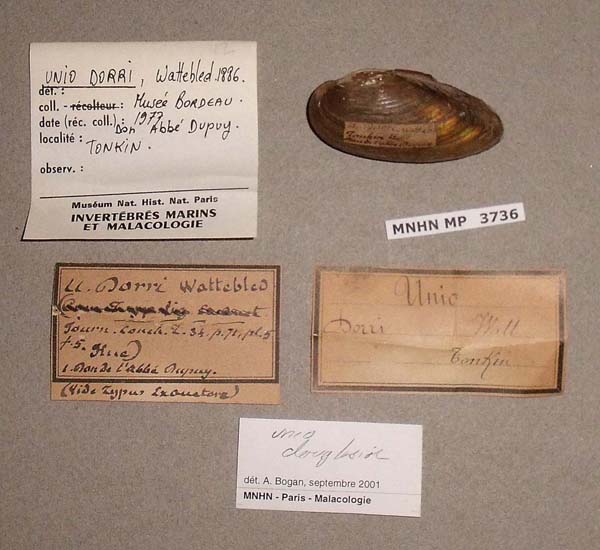 UNIO DORRI, Wattebled 1886.
dét. :
coll. - récolteur : Musée BORDEAU.
date (réc. coll.) : 1977
Don Abbé Dupuy.
localité :
TONKIN.
observ. :
Muséum Nat. Hist. Nat. Paris
INVERTÉBRÉS MARINS
ET MALACOLOGIE
Tonkin
MNHN MP 3736
U. Dorri Wattebled
Journ. Conch. t. 34. p. 71, pl. 5
f. 5. Hué)
1. Don de l'Abbé Dupuy.
(Vide Typus
Unio
Dorri Watt
Tonkin
unio
douglasiae
dét. A. Bogan, septembre 2001
MNHN - Paris - Malacologie